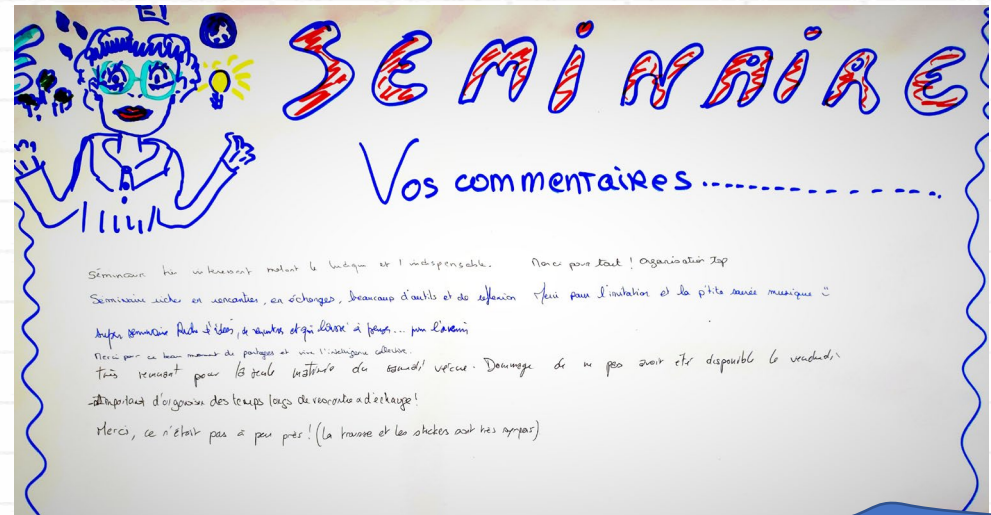 SEMINAIRE
Vos commentaires....................
Séminaire très interessant melant le ludique et l'indispensable. Merci pour tout ! Organisation Top
Séminaire riche en rencontres, en échanges, beaucoup d'outils et de réflexion Merci pour l'invitation et la p'tite soirée musique
Super séminaire Riche d'idées, de rencontres et qui laisse à penser... pour l'avenir
Merci pour ce beau moment de partages et vive l'intelligence collective.
Très pour la seule matinée du samedi vécue. Dommage de ne pas avoir été disponible le vendredi
Important d'organiser des temps longs de rencontre d'échange !
Merci, ce n'était pas à peu près ! (La trousse et les stickers sont très sympas)